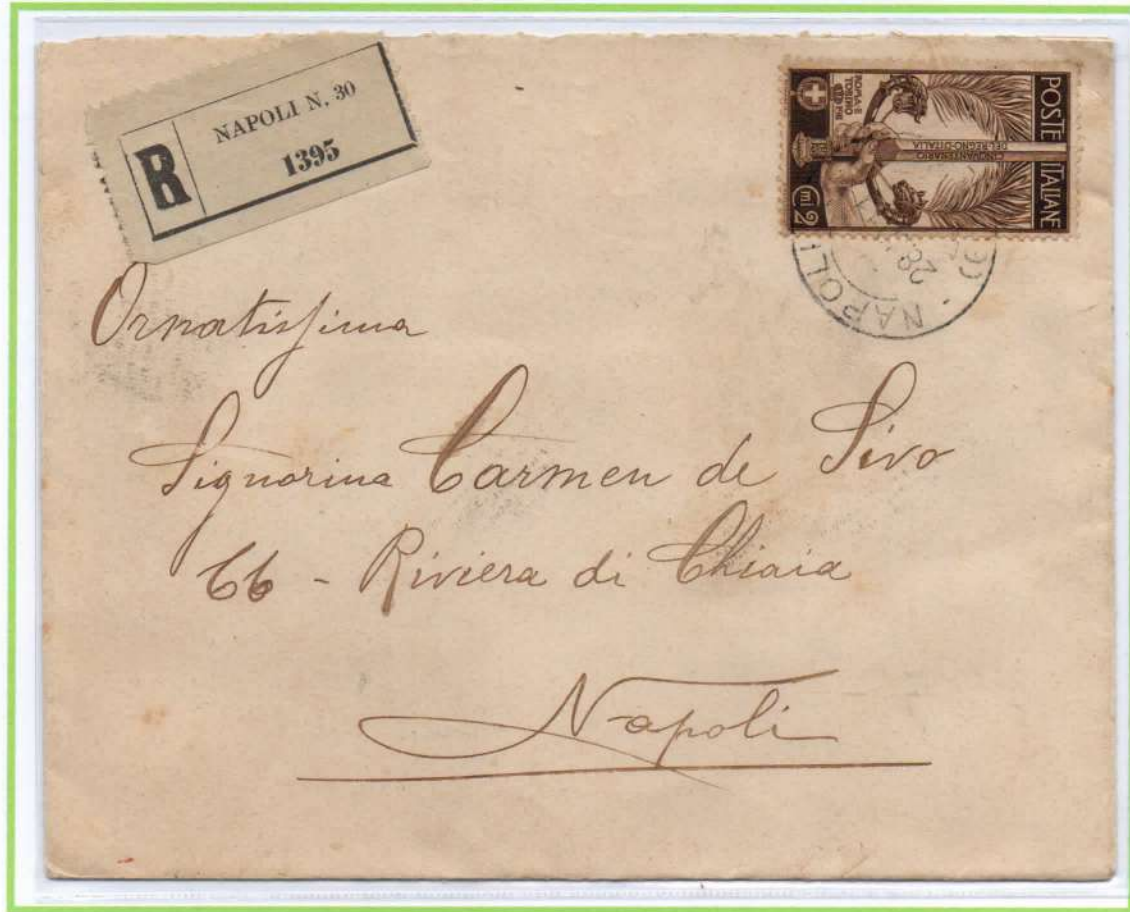 R
NAPOLI N. 30
1395
POSTE ITALIANE
ROMA E TORINO
CINQUANTENARIO
DEL REGNO D'ITALIA
Cmi 2
NAPOLI
28
Ornatissima
Signorina Carmen de Sivo
66 - Riviera di Chiaia
Napoli